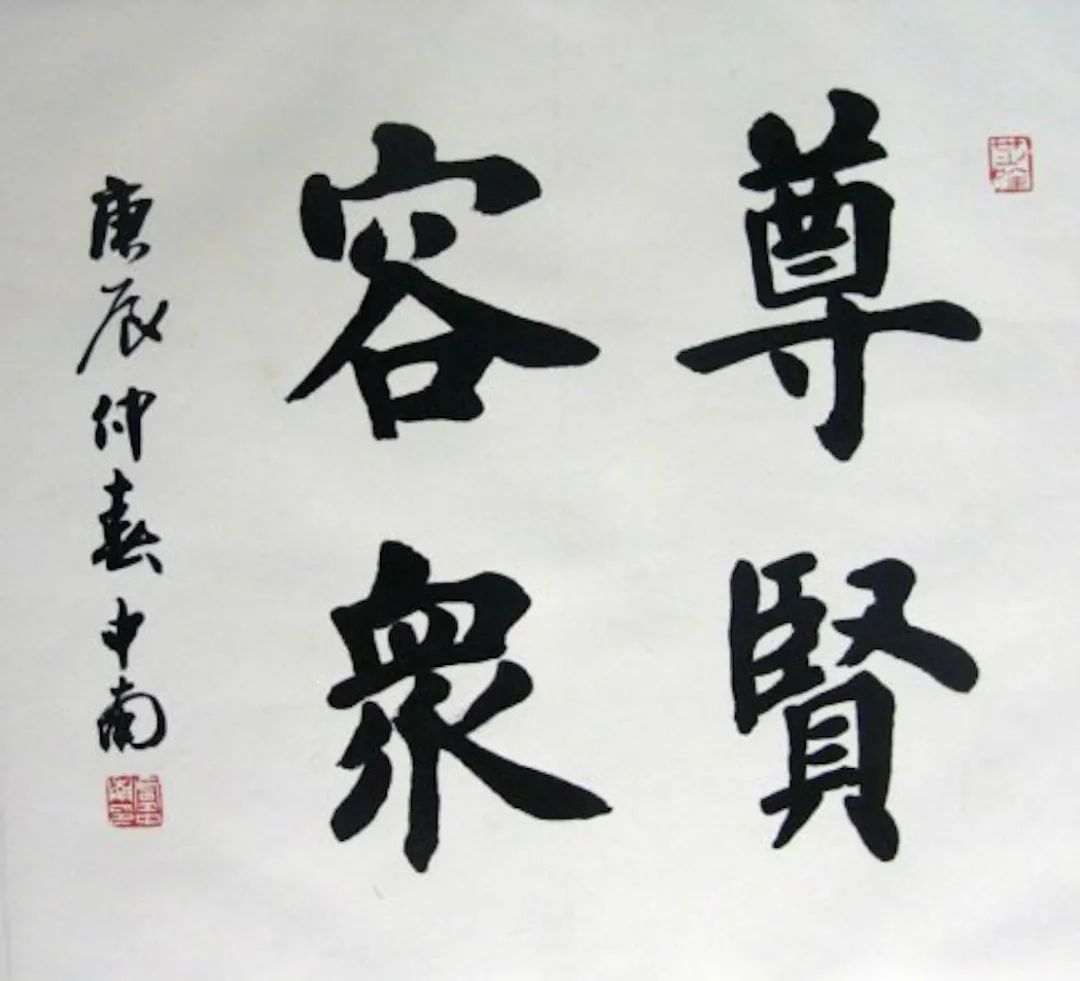 尊賢
容衆
庚辰仲春中南